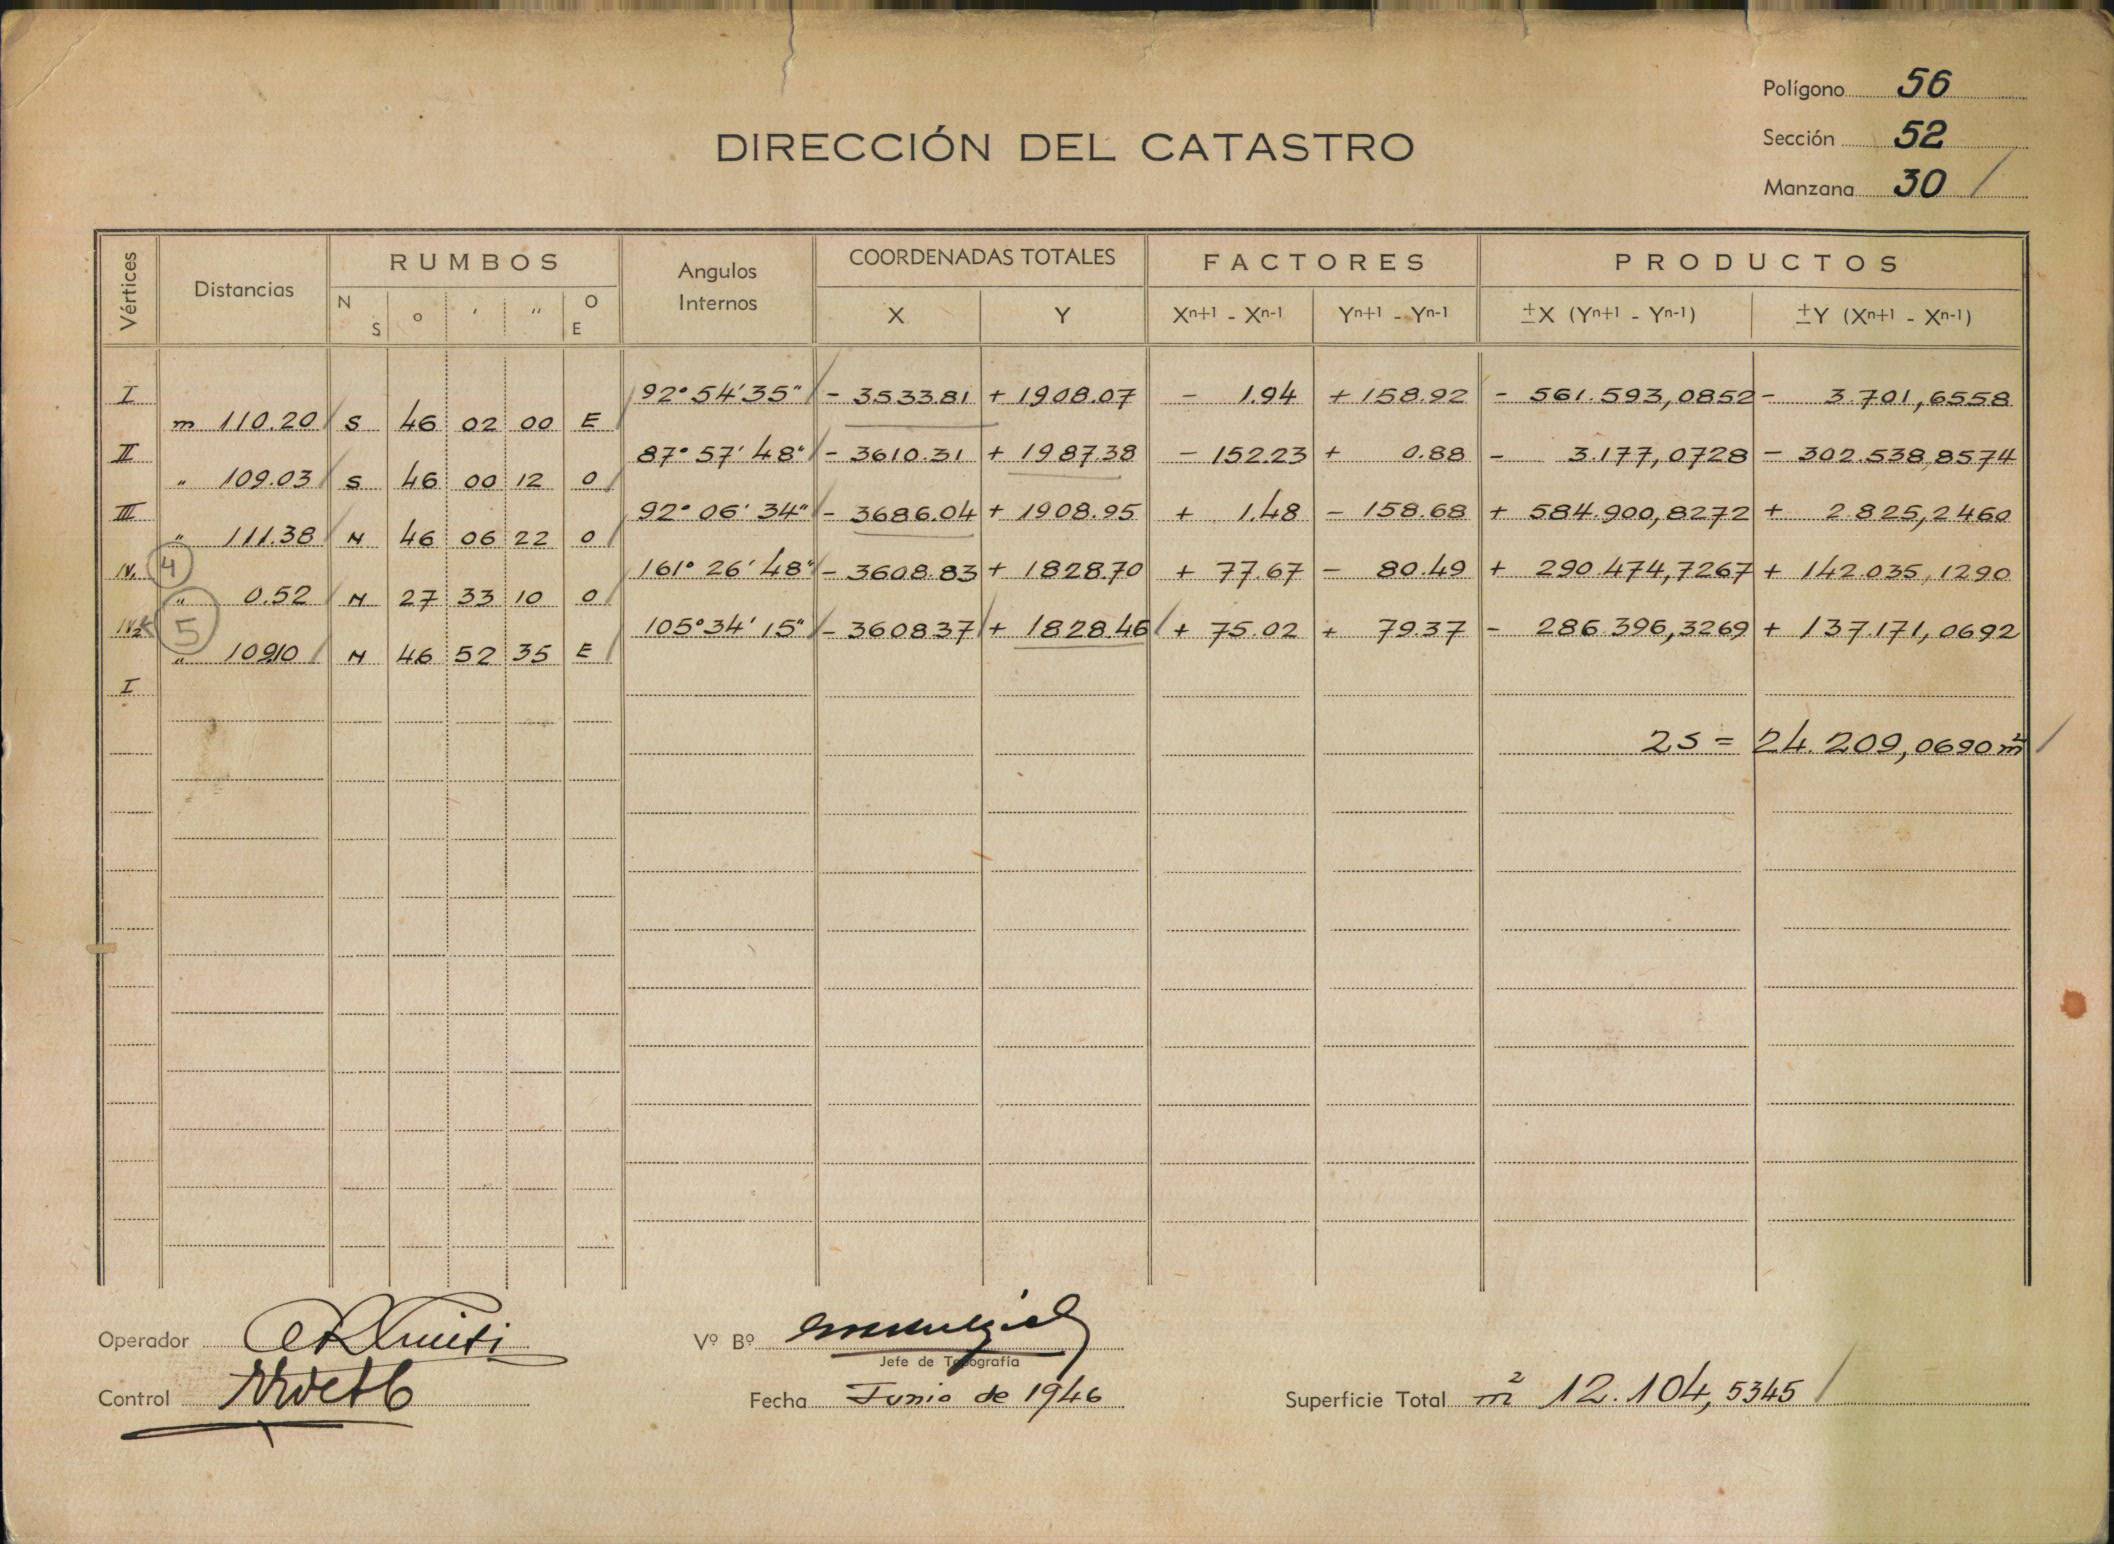 Polígono 56
DIRECCIÓN DEL CATASTRO
Sección 52
Manzana 30 /
Vértices Distancias RUMBOS Angulos Internos COORDENADAS TOTALES FACTORES PRODUCTOS
N S ° ' " O E X Y Xⁿ⁺¹ - Xⁿ⁻¹ Yⁿ⁺¹ - Yⁿ⁻¹ ±X (Yⁿ⁺¹ - Yⁿ⁻¹) ±Y (Xⁿ⁺¹ - Xⁿ⁻¹)
I 92° 54' 35" - 3533.81 + 1908.07 - 1.94 + 158.92 - 561.593,0852 - 3.701,6558
m 110.20 S 46 02 00 E
II 87° 57' 48" - 3610.31 + 1987.38 - 152.23 + 0.88 - 3.177,0728 - 302.538,8574
" 109.03 S 46 00 12 O
III 92° 06' 34" - 3686.04 + 1908.95 + 1.48 - 158.68 + 584.900,8272 + 2.825,2460
" 111.38 N 46 06 22 O
IV₁ 4 161° 26' 48" - 3608.83 + 1828.70 + 77.67 - 80.49 + 290.474,7267 + 142.035,1290
" 0.52 N 27 33 10 O
IV₂ 5 105° 34' 15" - 3608.37 + 1828.46 + 75.02 + 79.37 - 286.396,3269 + 137.171,0692
" 109.10 N 46 52 35 E
I
2S = 24.209,0690 m²
Operador
Vº Bº
Jefe de Topografía
Control
Fecha Junio de 1946
Superficie Total m² 12.104,5345